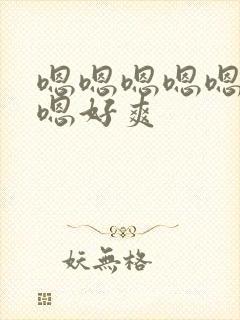 嗯嗯嗯嗯嗯
嗯好爽
妖無格